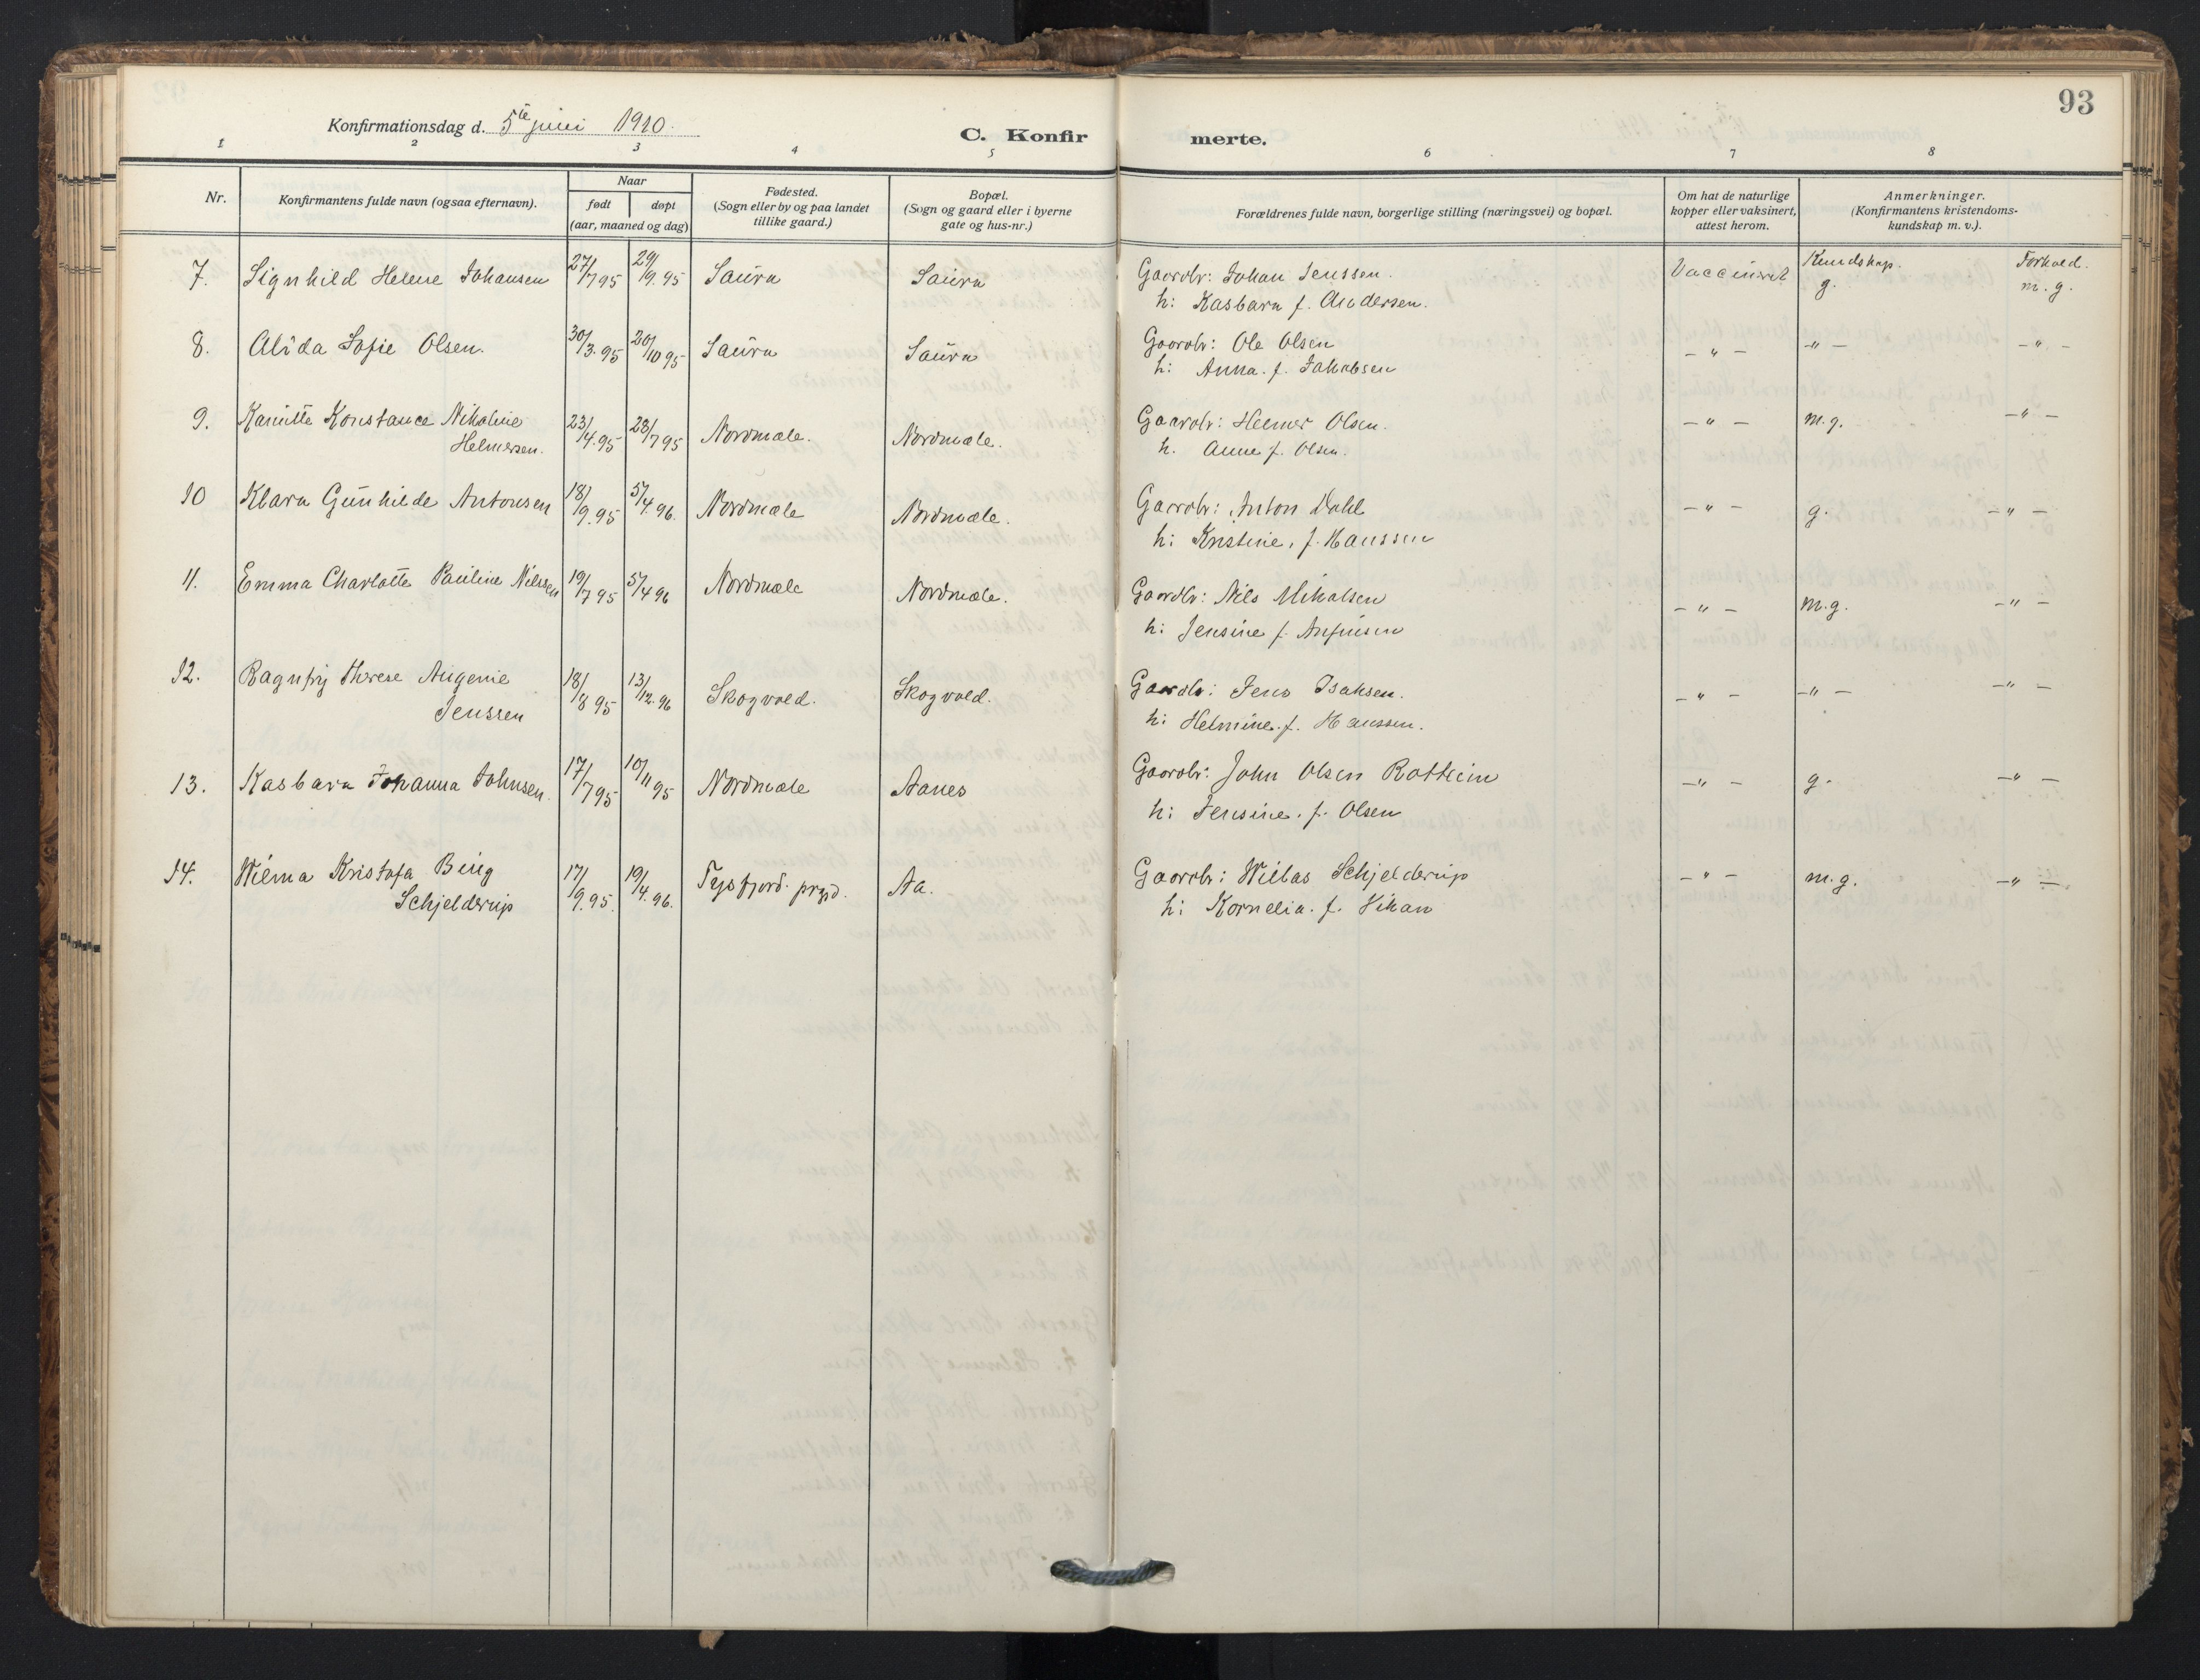 93
Konfirmationsdag d. 5te juni 1910.
C. Konfirmerte.
1 2 3 4 5 6 7 8
Nr. Konfirmantens fulde navn (ogsaa efternavn). Naar født døpt (aar, maaned og dag) Fødested. (Sogn eller by og paa landet tillike gaard.) Bopæl. (Sogn og gaard eller i byerne gate og hus-nr.) Forældrenes fulde navn, borgerlige stilling (næringsvei) og bopæl. Om hat de naturlige kopper eller vaksinert, attest herom. Anmerkninger. (Konfirmantens kristendoms-kundskap m. v.).
Kundskap. Forhold.
7. Signhild Helene Johansen 27/7 95 29/9. 95 Saura Saura Gaardbr: Johan Jenssen. Vaccineret g. m. g.
h: Kasbara f. Andersen.
8. Alida Sofie Olsen. 30/3. 95 20/10 95 Saura Saura Gaardbr: Ole Olsen - " - - " - - " -
h: Anna. f. Jakobsen
9. Kamitte Konstance Nikoline 23/4. 95 28/7 95 Nordmæle. Nordmæle. Gaardbr: Helmer Olsen. - " - m. g. - " -
Helmersen. h. Anne f. Olsen.
10 Klara Gunhilde Antonsen 18/9. 95 5/4. 96. Nordmæle Nordmæle. Gaardbr: Anton Dahl - " - g. - " -
h: Kristine, f. Hanssen
11. Emma Charlotte Pauline Nilssen 19/7 95 5/4 96 Nordmæle Nordmæle. Gaardbr: Nils Mikalsen - " - m. g. - " -
h: Jensine f. Anfinsen
12. Ragnfrij Therese Augenie 18/8 95 13/12. 96 Skogvold. Skogvold. Gaardbr: Jens Isaksen. - " - - " - - " -
Jenssen h: Helmine. f. Hanssen.
13. Kasbara Johanna Johnsen. 17/7 95 10/11 95 Nordmæle Aanes Gaardbr: John Olsen Rotheim - " - g. - " -
h: Jensine. f. Olsen
14. Wilma Kristofa Bing 17/9. 95. 19/4. 96. Tysfjord. prgd. Aa. Gaardbr: Willas Schjelderup - " - m. g. - " -
Schjelderup h: Kornelia. f. Vikan